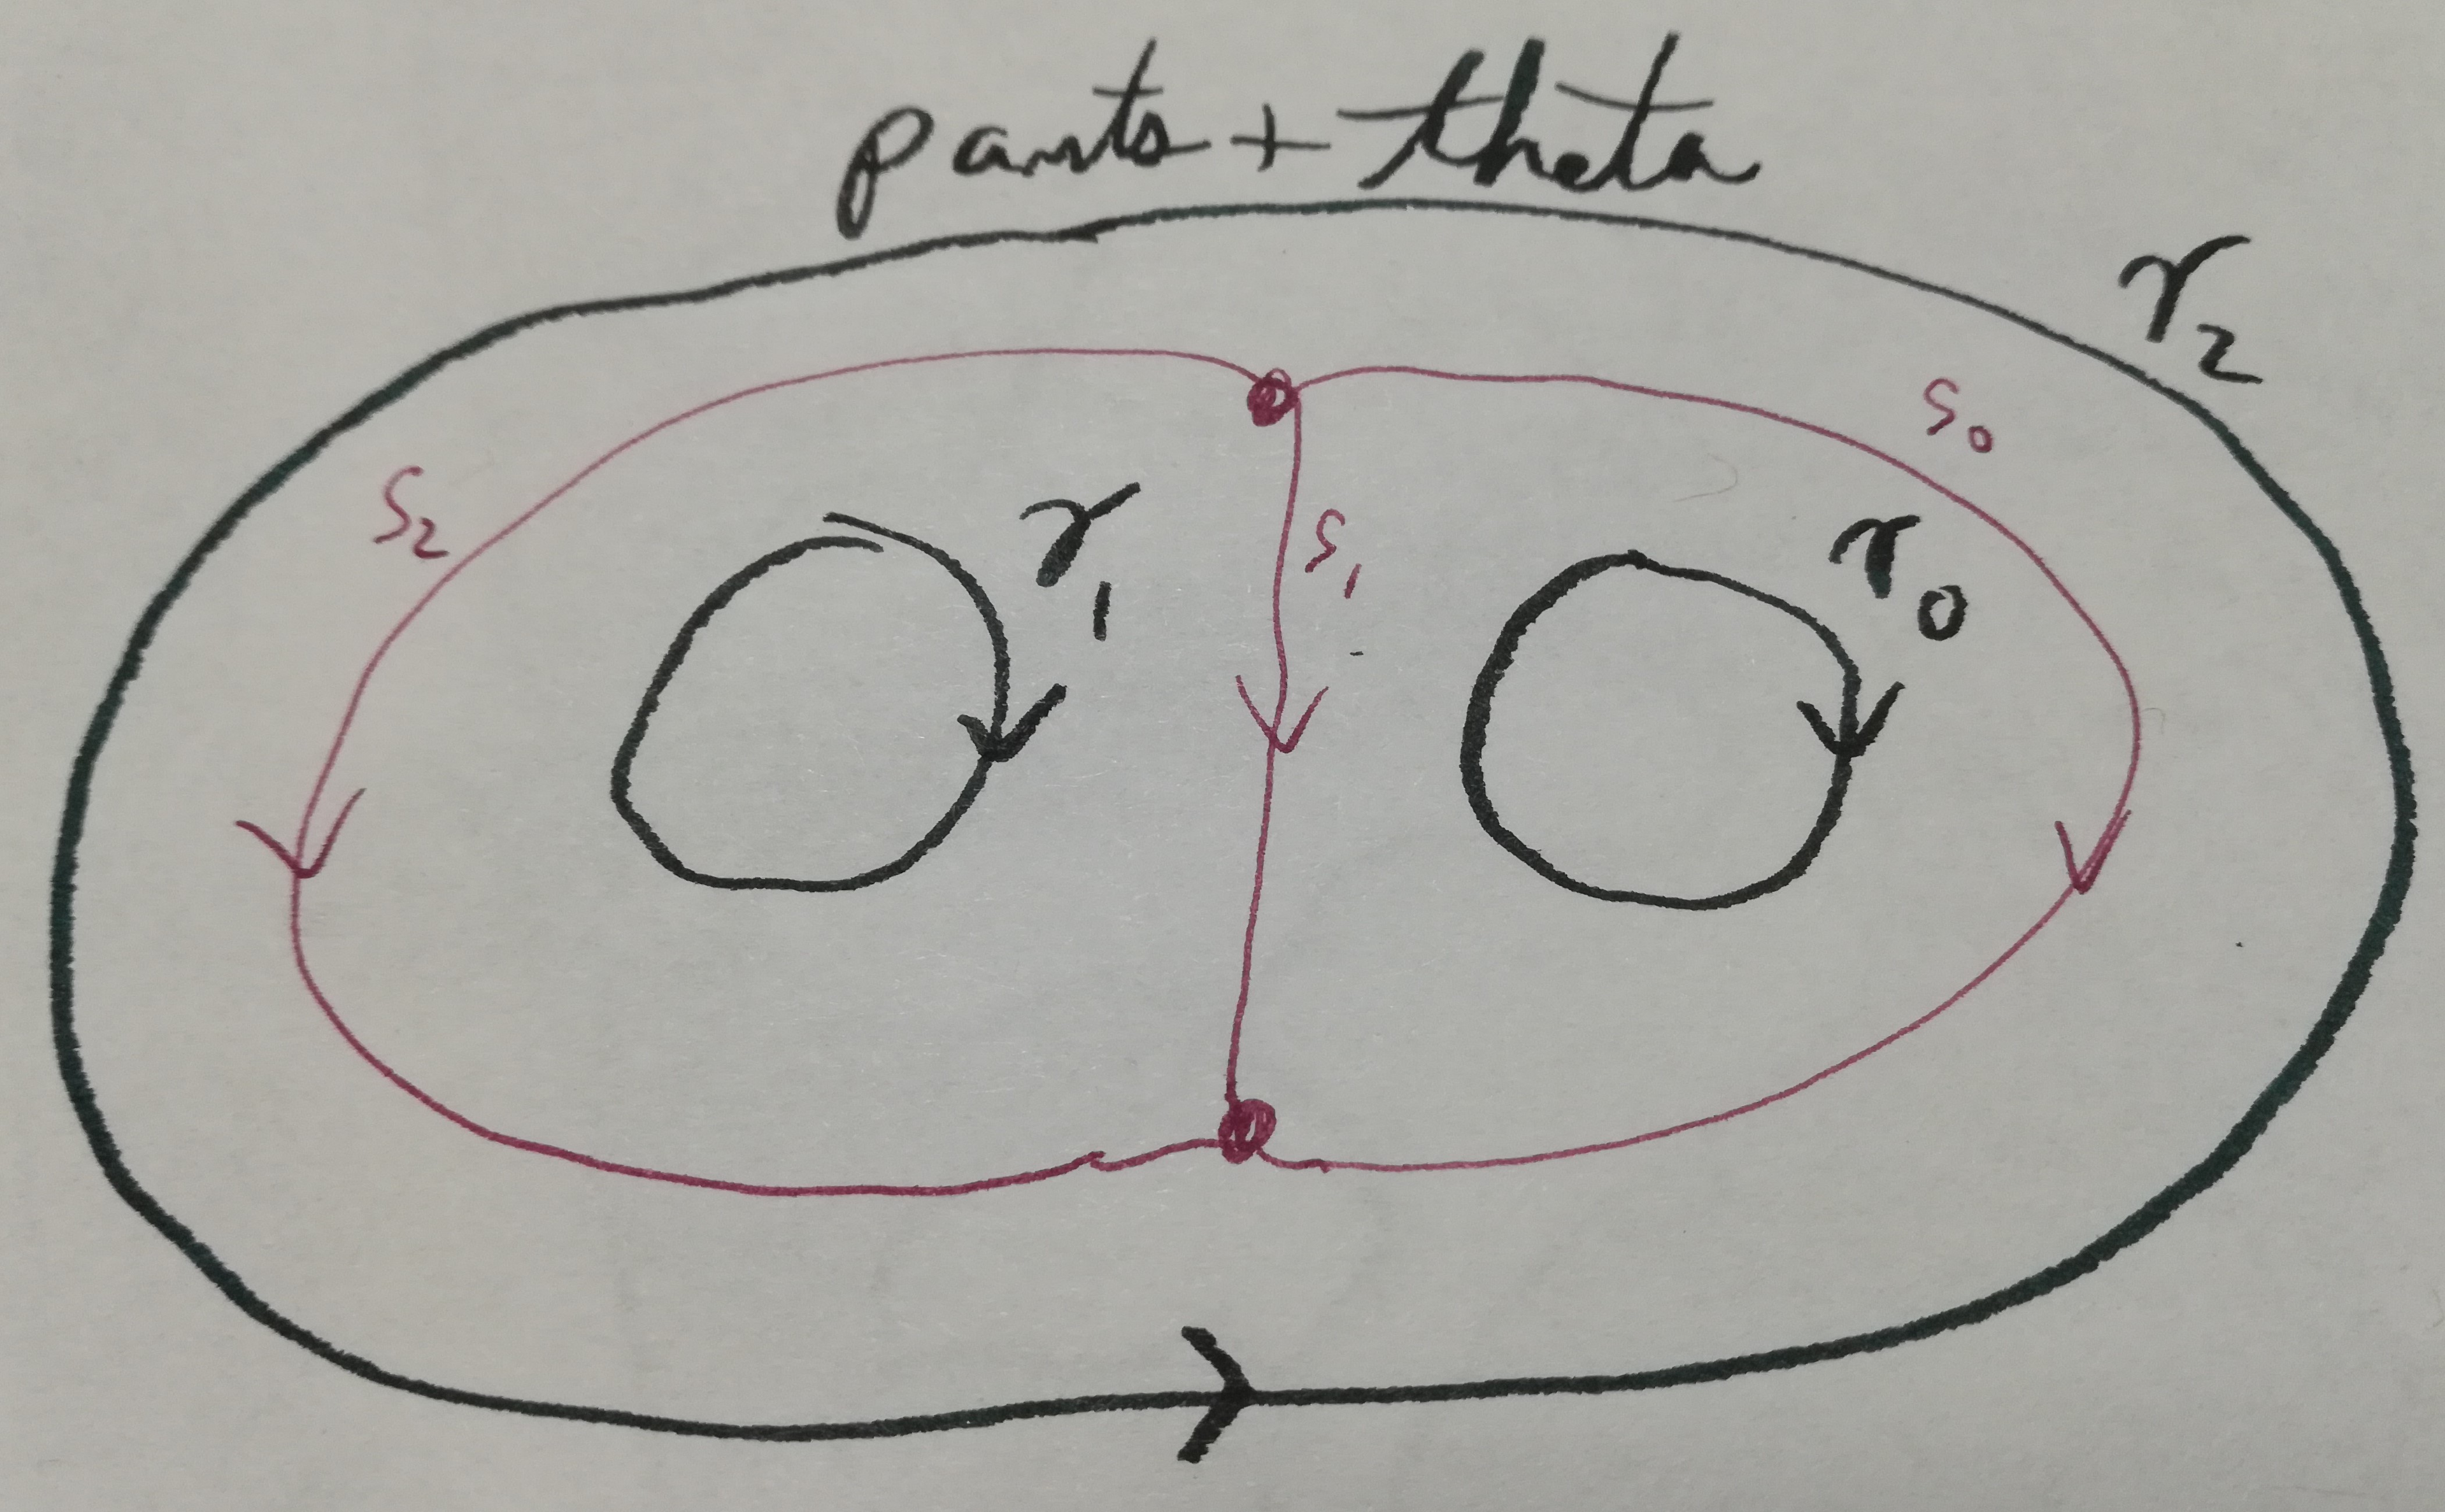 pants + theta
γ₂
s₀
s₂
γ₁
s₁
γ₀